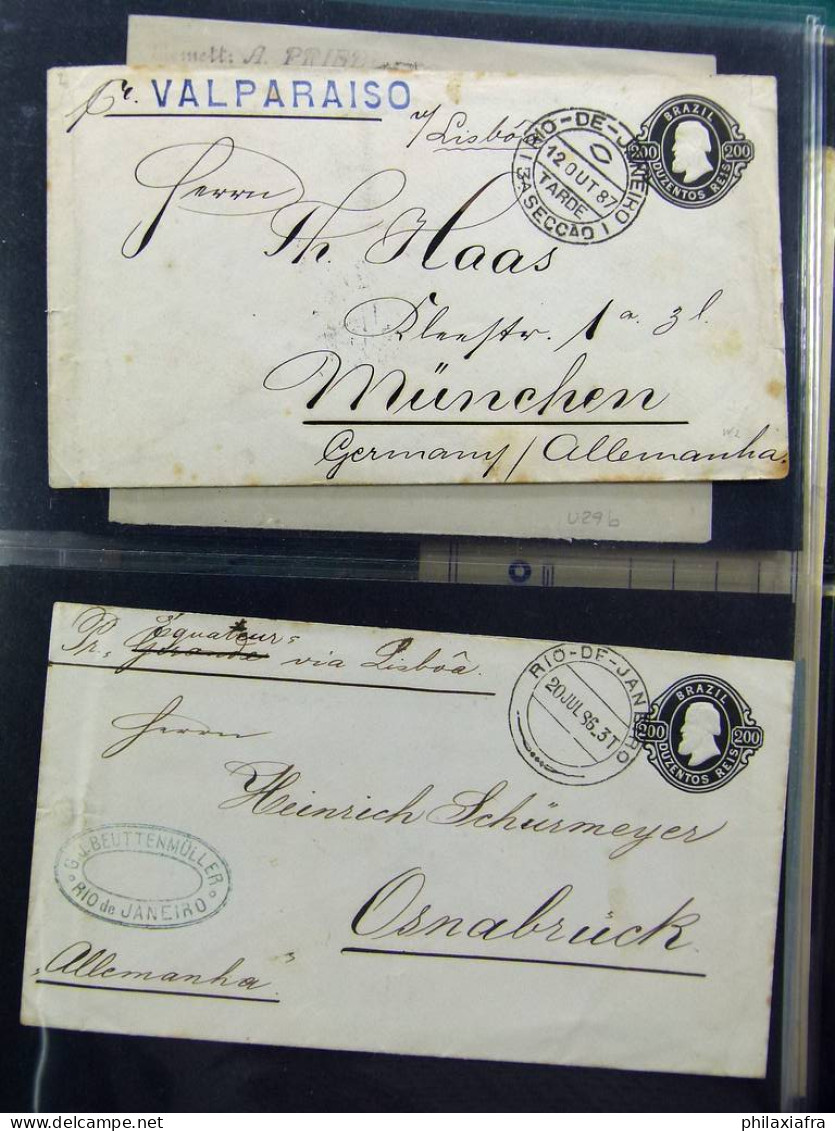 A. PRIE
Pr. VALPARAISO
v/ Lisbôa
RIO-DE-JANEIRO
12 OUT 87
TARDE
3A SECCÃO
BRAZIL
200 200
DUZENTOS REIS
Herrn
Th. Haas
Kleestr. 1 a. 3 l.
München
Germany / Allemanha.
U29b
Équateur
Pr. Gironde via Lisbôa.
RIO-DE-JANEIRO
20 JUL 86.3T
BRAZIL
200 200
DUZENTOS REIS
Herrn
Heinrich Schürmeyer
G.J. BEUTTENMÜLLER
RIO de JANEIRO
Osnabrück.
„Allemanha"
philaxiafra
www.delcampe.net